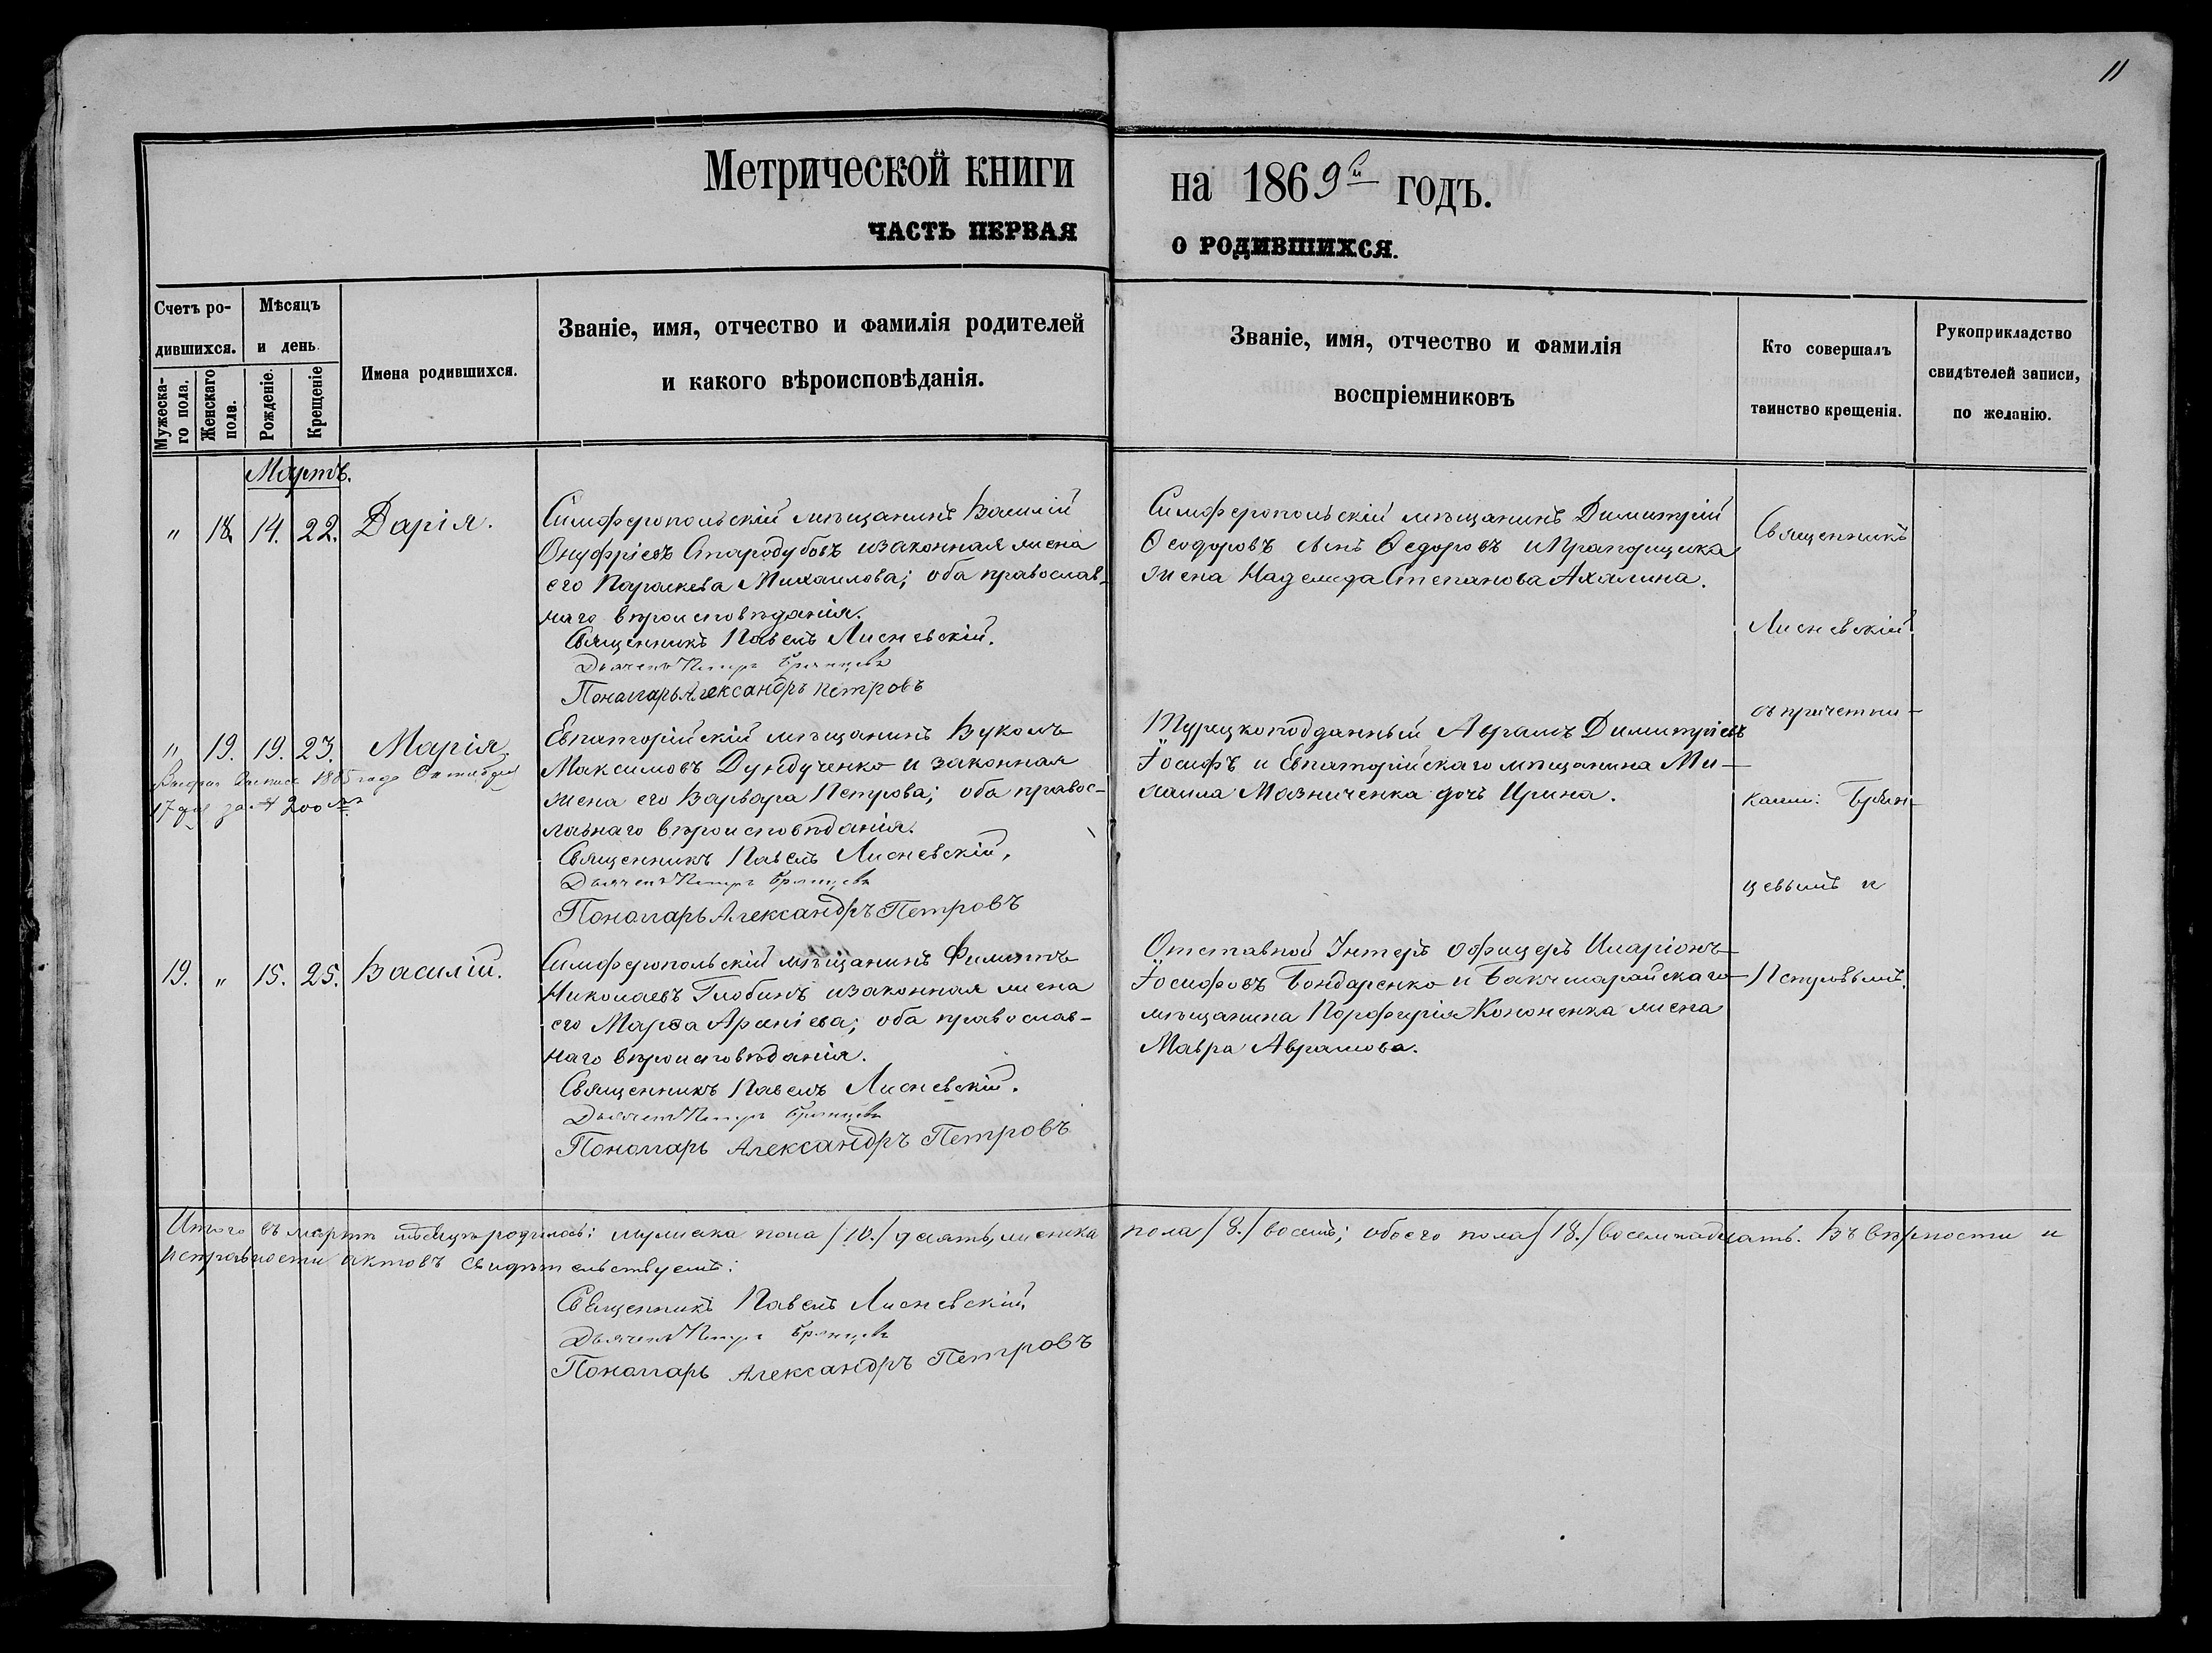 11
Метрической книги на 1869й годъ.
ЧАСТЬ ПЕРВАЯ О РОДИВШИХСЯ.
Счетъ ро-
дившихся.
Мужеска-
го пола.
Женскаго
пола.
Мѣсяцъ
и день.
Рожденіе.
Крещеніе
Имена родившихся.
Званіе, имя, отчество и фамилія родителей
и какого вѣроисповѣданія.
Званіе, имя, отчество и фамилія
воспріемниковъ
Кто совершалъ
таинство крещенія.
Рукоприкладство
свидѣтелей записи,
по желанію.
Мартъ.
" 18. 14. 22. Дарія.
Симферопольскій мѣщанинъ Василій
Онуфріевъ Стародубовъ и законная жена
его Параскева Михаилова; оба православ-
наго вѣроисповѣданія.
Священникъ Павелъ Лисневскій.
Дьячекъ Петръ Брянцевъ
Пономарь Александръ Петровъ
Симферопольскій мѣщанинъ Димитрій
Ѳеодоровъ сынъ Ѳедоровъ и Прапорщика
жена Надежда Степанова Ахалина.
" 19. 19. 23. Марія.
1885 года Октября
17 дня за № 200
Евпаторійскій мѣщанинъ Вуколъ
Максимовъ Дундученко и законная
жена его Варвара Петрова; оба правос-
лавнаго вѣроисповѣданія.
Священникъ Павелъ Лисневскій.
Дьячекъ Петръ Брянцевъ
Пономарь Александръ Петровъ
Турецкоподданный Авраамъ Димитріевъ
Іосифъ и Евпаторійскаго мѣщанина Ми-
хаила Мазниченка дочь Ирина.
19. " 15. 25. Василій.
Симферопольскій мѣщанинъ Филиппъ
Николаевъ Глобинъ и законная жена
его Марѳа Арсеніева; оба православ-
наго вѣроисповѣданія.
Священникъ Павелъ Лисневскій.
Дьячекъ Петръ Брянцевъ
Пономарь Александръ Петровъ
Отставной Унтеръ офицеръ Иларіонъ
Іосифовъ Бондаренко и Бакчисарайскаго
мѣщанина Порфирія Кононенка жена
Мавра Авраамова.
Священникъ
Лисневскій
съ причетни-
ками: Брян-
цевымъ и
Петровымъ.
Итого въ мартѣ мѣсяцѣ родилось: мужеска пола /10./ десять, женска пола /8./ восемь; обоего пола /18./ восемнадцать. Въ вѣрности и
исправности актовъ свидѣтельствуемъ:
Священникъ Павелъ Лисневскій
Дьячекъ Петръ Брянцевъ
Пономарь Александръ Петровъ